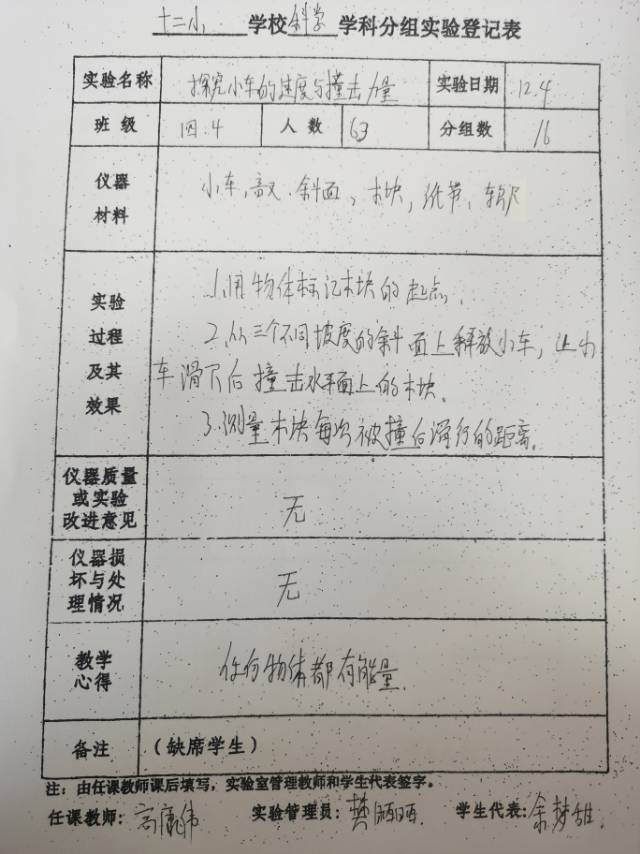 十二小 学校 科学 学科分组实验登记表
实验名称 探究小车的速度与撞击力量 实验日期 12.4
班级 四.4 人数 63 分组数 16
仪器 小车, 斜面, 木块, 纸带, 软尺
材料
1.用物体标记木块的起点.
实验
过程 2.从三个不同坡度的斜面上释放小车, 让小
及其 车滑下后撞击水平面上的木块.
效果 3.测量木块每次被撞后滑行的距离.
仪器质量
或实验 无
改进意见
仪器损
坏与处 无
理情况
教学 任何物体都有能量.
心得
备注 (缺席学生)
注:由任课教师课后填写,实验室管理教师和学生代表签字。
任课教师: 高康伟 实验管理员: 樊丽丽. 学生代表: 余梦雅.